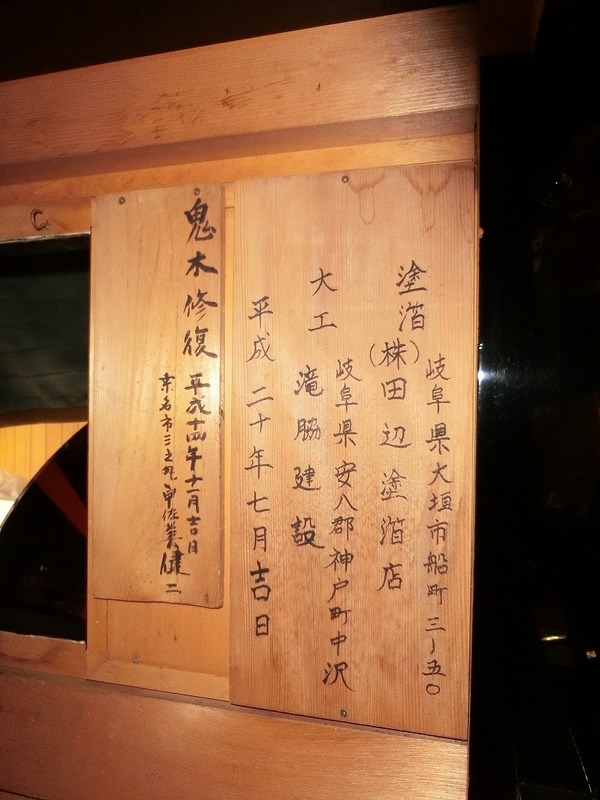 塗箔
岐阜県大垣市船町三ー五〇
(株)田辺塗箔店
大工
岐阜県安八郡神戸町中沢
滝脇建設
平成二十年七月吉日
鬼木修復
平成十四年十一月吉日
桑名市三之丸
健二